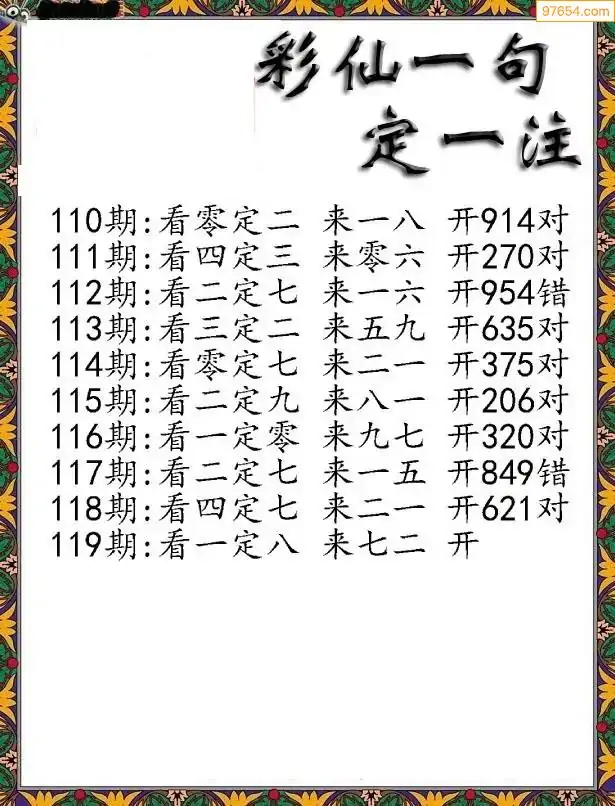 97654.com
彩仙一句
定一注
110期:看零定二 来一八 开914对
111期:看四定三 来零六 开270对
112期:看二定七 来一六 开954错
113期:看三定二 来五九 开635对
114期:看零定七 来二一 开375对
115期:看二定九 来八一 开206对
116期:看一定零 来九七 开320对
117期:看二定七 来一五 开849错
118期:看四定七 来二一 开621对
119期:看一定八 来七二 开